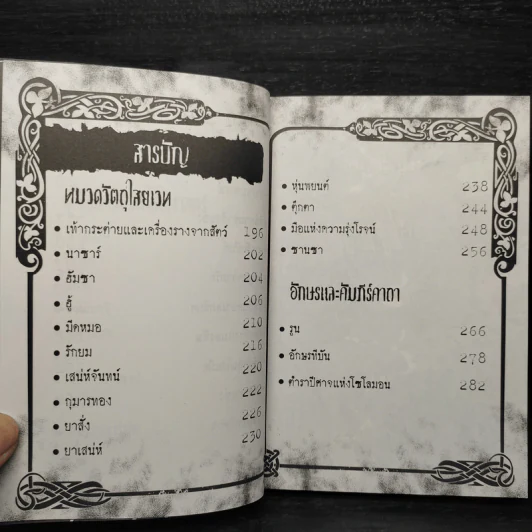 สารบัญ
หมวดวัตถุไสยเวท
• เท้ากระต่ายและเครื่องรางจากสัตว์ 196
• นาซาร์ 202
• ฮัมซา 204
• ฮู้ 206
• มีดหมอ 210
• รักยม 216
• เสน่ห์จันทน์ 220
• กุมารทอง 222
• ยาสั่ง 226
• ยาเสน่ห์ 230
• หุ่นพยนต์ 238
• ตุ๊กตา 244
• มือแห่งความรุ่งโรจน์ 248
• ซานซา 256
อักษรและคัมภีร์คาถา
• รูน 266
• อักษรทีบัน 278
• ตำราปีศาจแห่งโซโลมอน 282